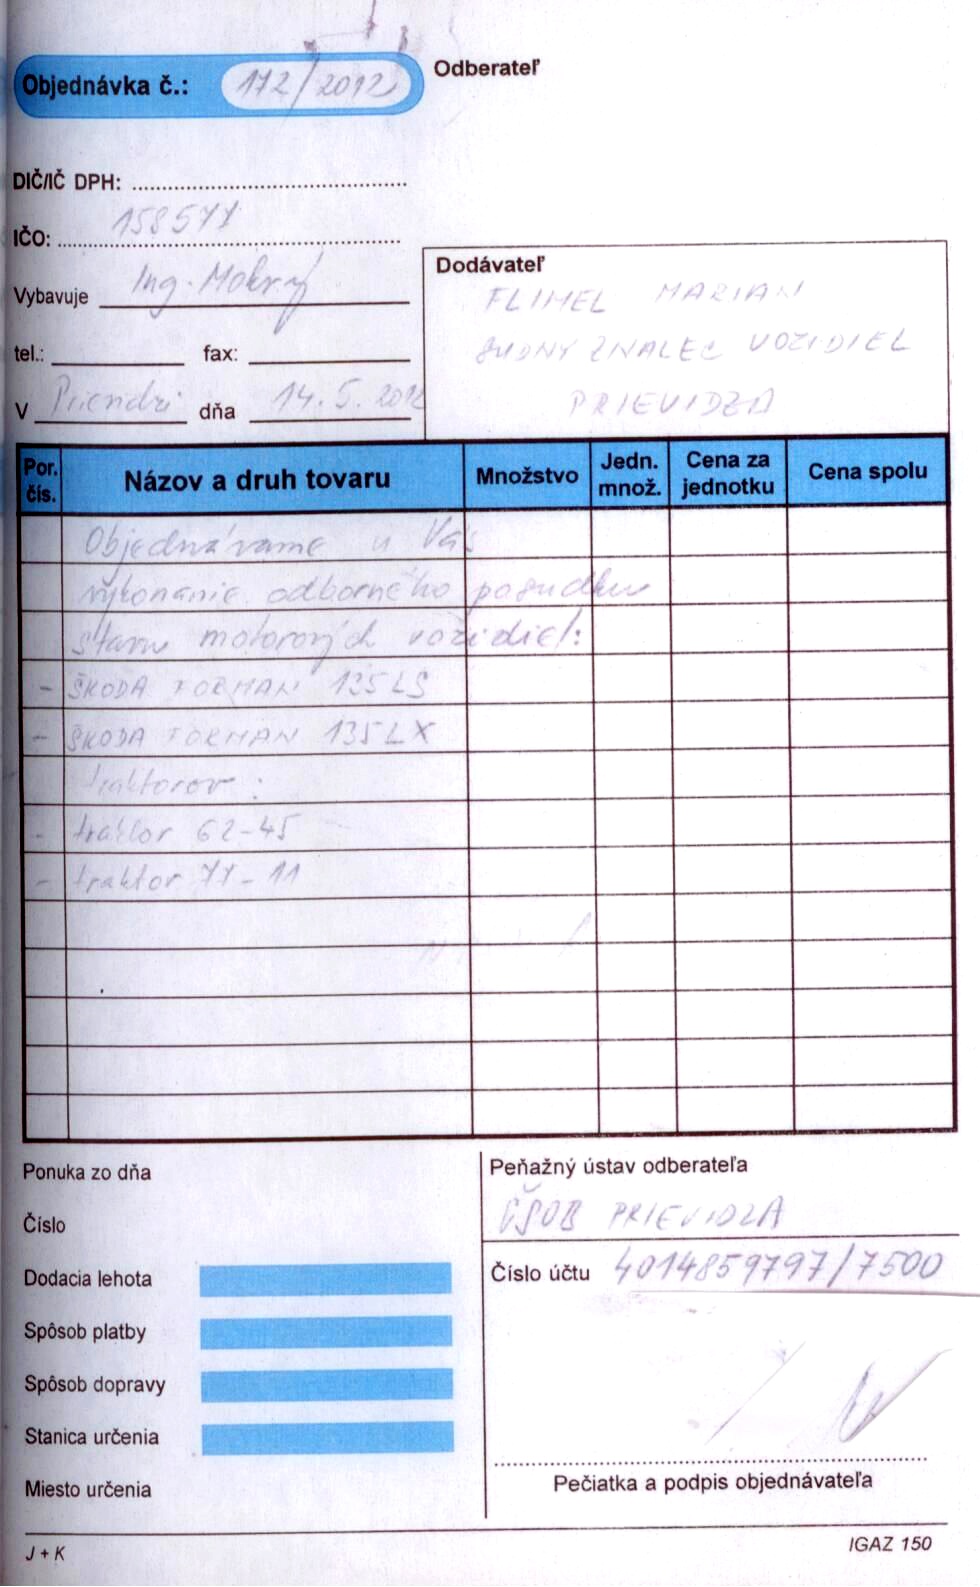 Objednávka č.: 172/2012
Odberateľ
DIČ/IČ DPH:
IČO: 158577
Vybavuje Ing. Mokrý
tel.: fax:
V dňa 14.5.2012
Dodávateľ
FLIMEL MARIAN
SUDNY ZNALEC VOZIDIEL
PRIEVIDZA
Por. čís. Názov a druh tovaru Množstvo Jedn. množ. Cena za jednotku Cena spolu
Objednávame u Vás
vykonanie odborného posudku
stavu motorových vozidiel:
- ŠKODA FORMAN 135 LS
- ŠKODA FORMAN 135 LX
traktorov:
- traktor 62-45
- traktor 77-11
Ponuka zo dňa
Číslo
Dodacia lehota
Spôsob platby
Spôsob dopravy
Stanica určenia
Miesto určenia
Peňažný ústav odberateľa
ČSOB PRIEVIDZA
Číslo účtu 4014859797/7500
Pečiatka a podpis objednávateľa
J + K
IGAZ 150